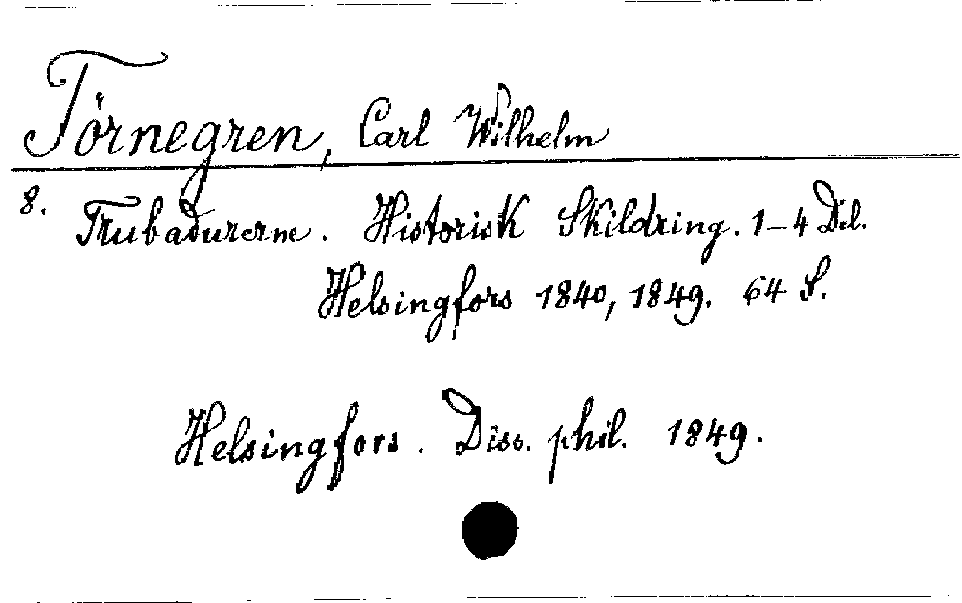 Törnegren, Carl Wilhelm
8. Trubadurerne. Historisk Skildring. 1-4 Del.
Helsingfors 1840, 1849. 64 S.
Helsingfors. Diss. phil. 1849.